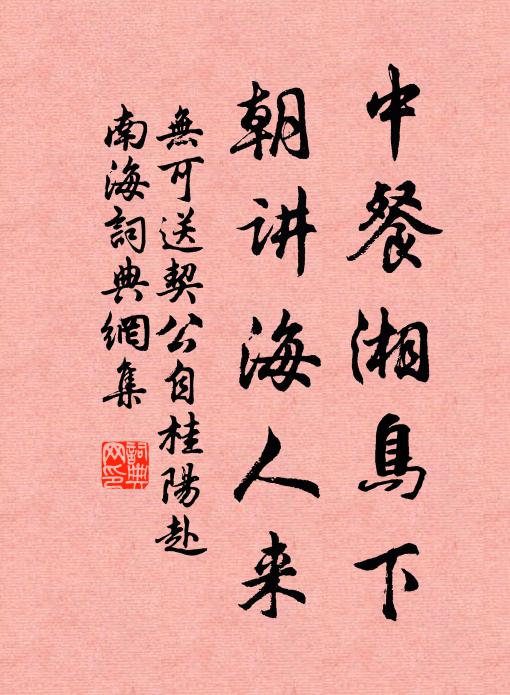 中餐湘鳥下
朝讲海人来
無可送契公自桂陽赴
南海詞典網集
詞典网印